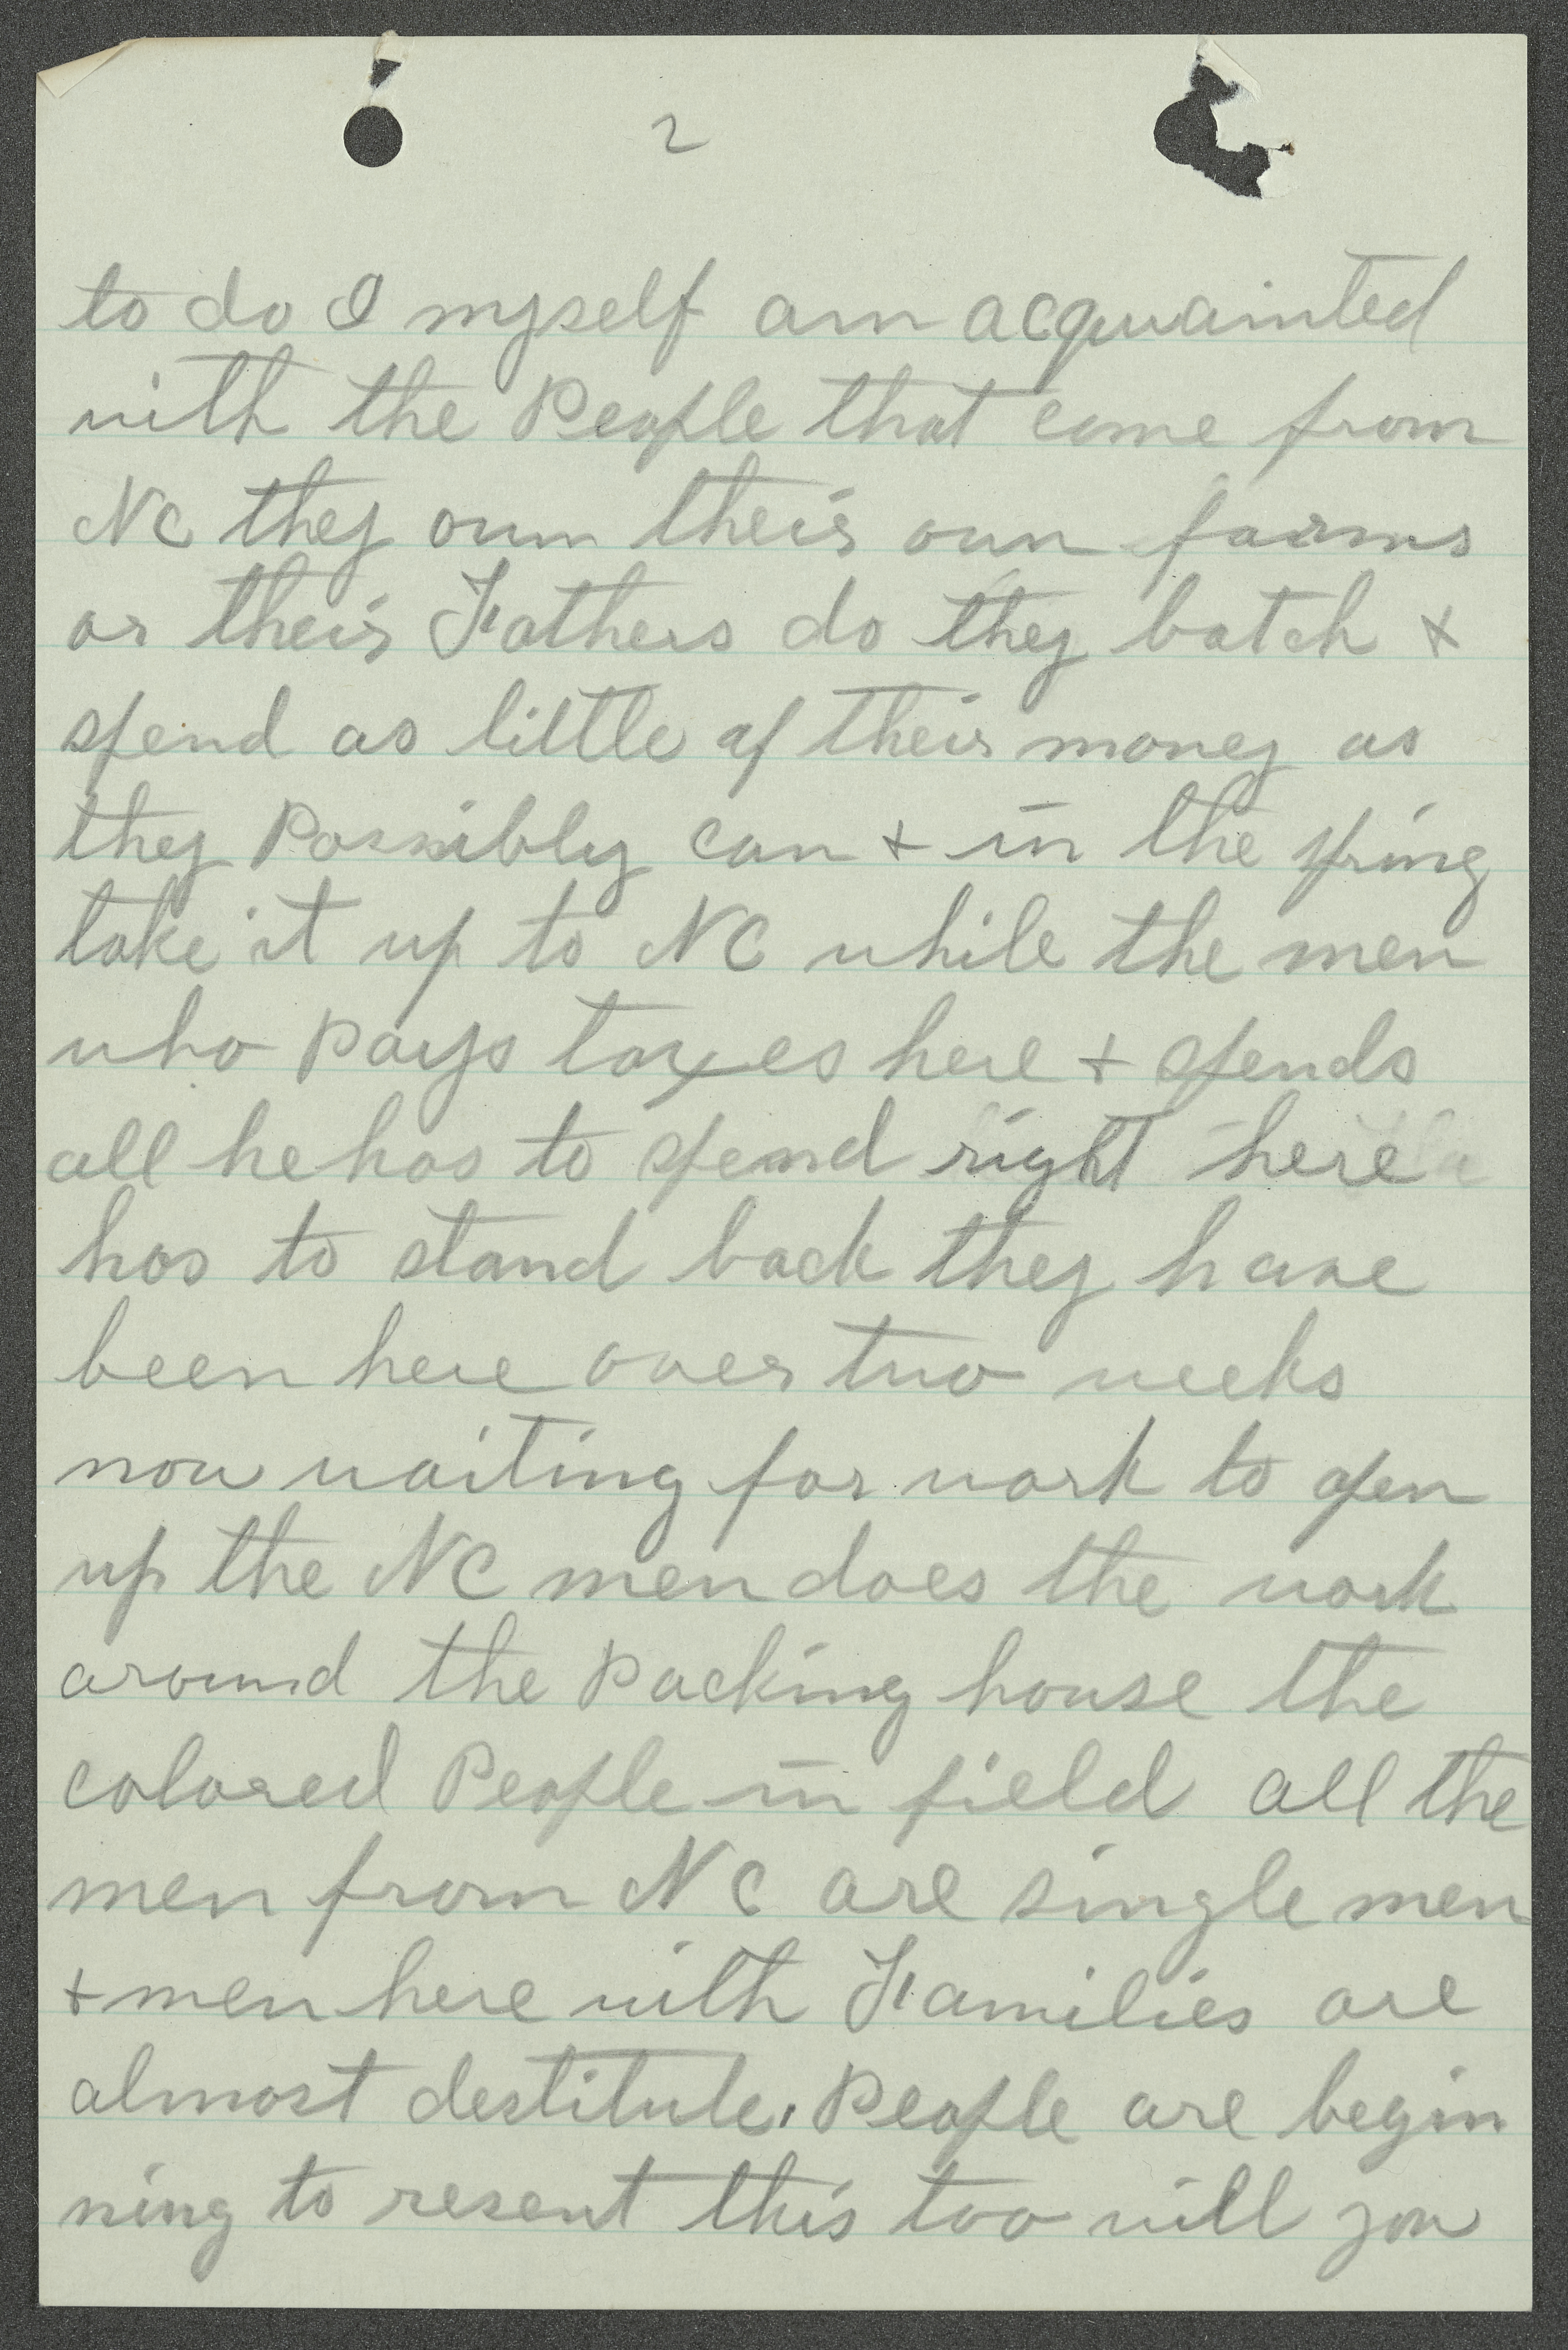 2
to do I myself am acquainted
with the People that come from
NC they own their own farms
or their Fathers do they batch +
spend as little of their money as
they Possibly can + in the spring
take it up to NC while the men
who Pays taxes here + spends
all he has to spend right here
has to stand back they have
been here over two weeks
now waiting for work to open
up the NC men does the work
around the Packing house the
colored People in field all the
men from NC are single men
+ men here with Families are
almost destitute. People are begin
ning to resent this too will you